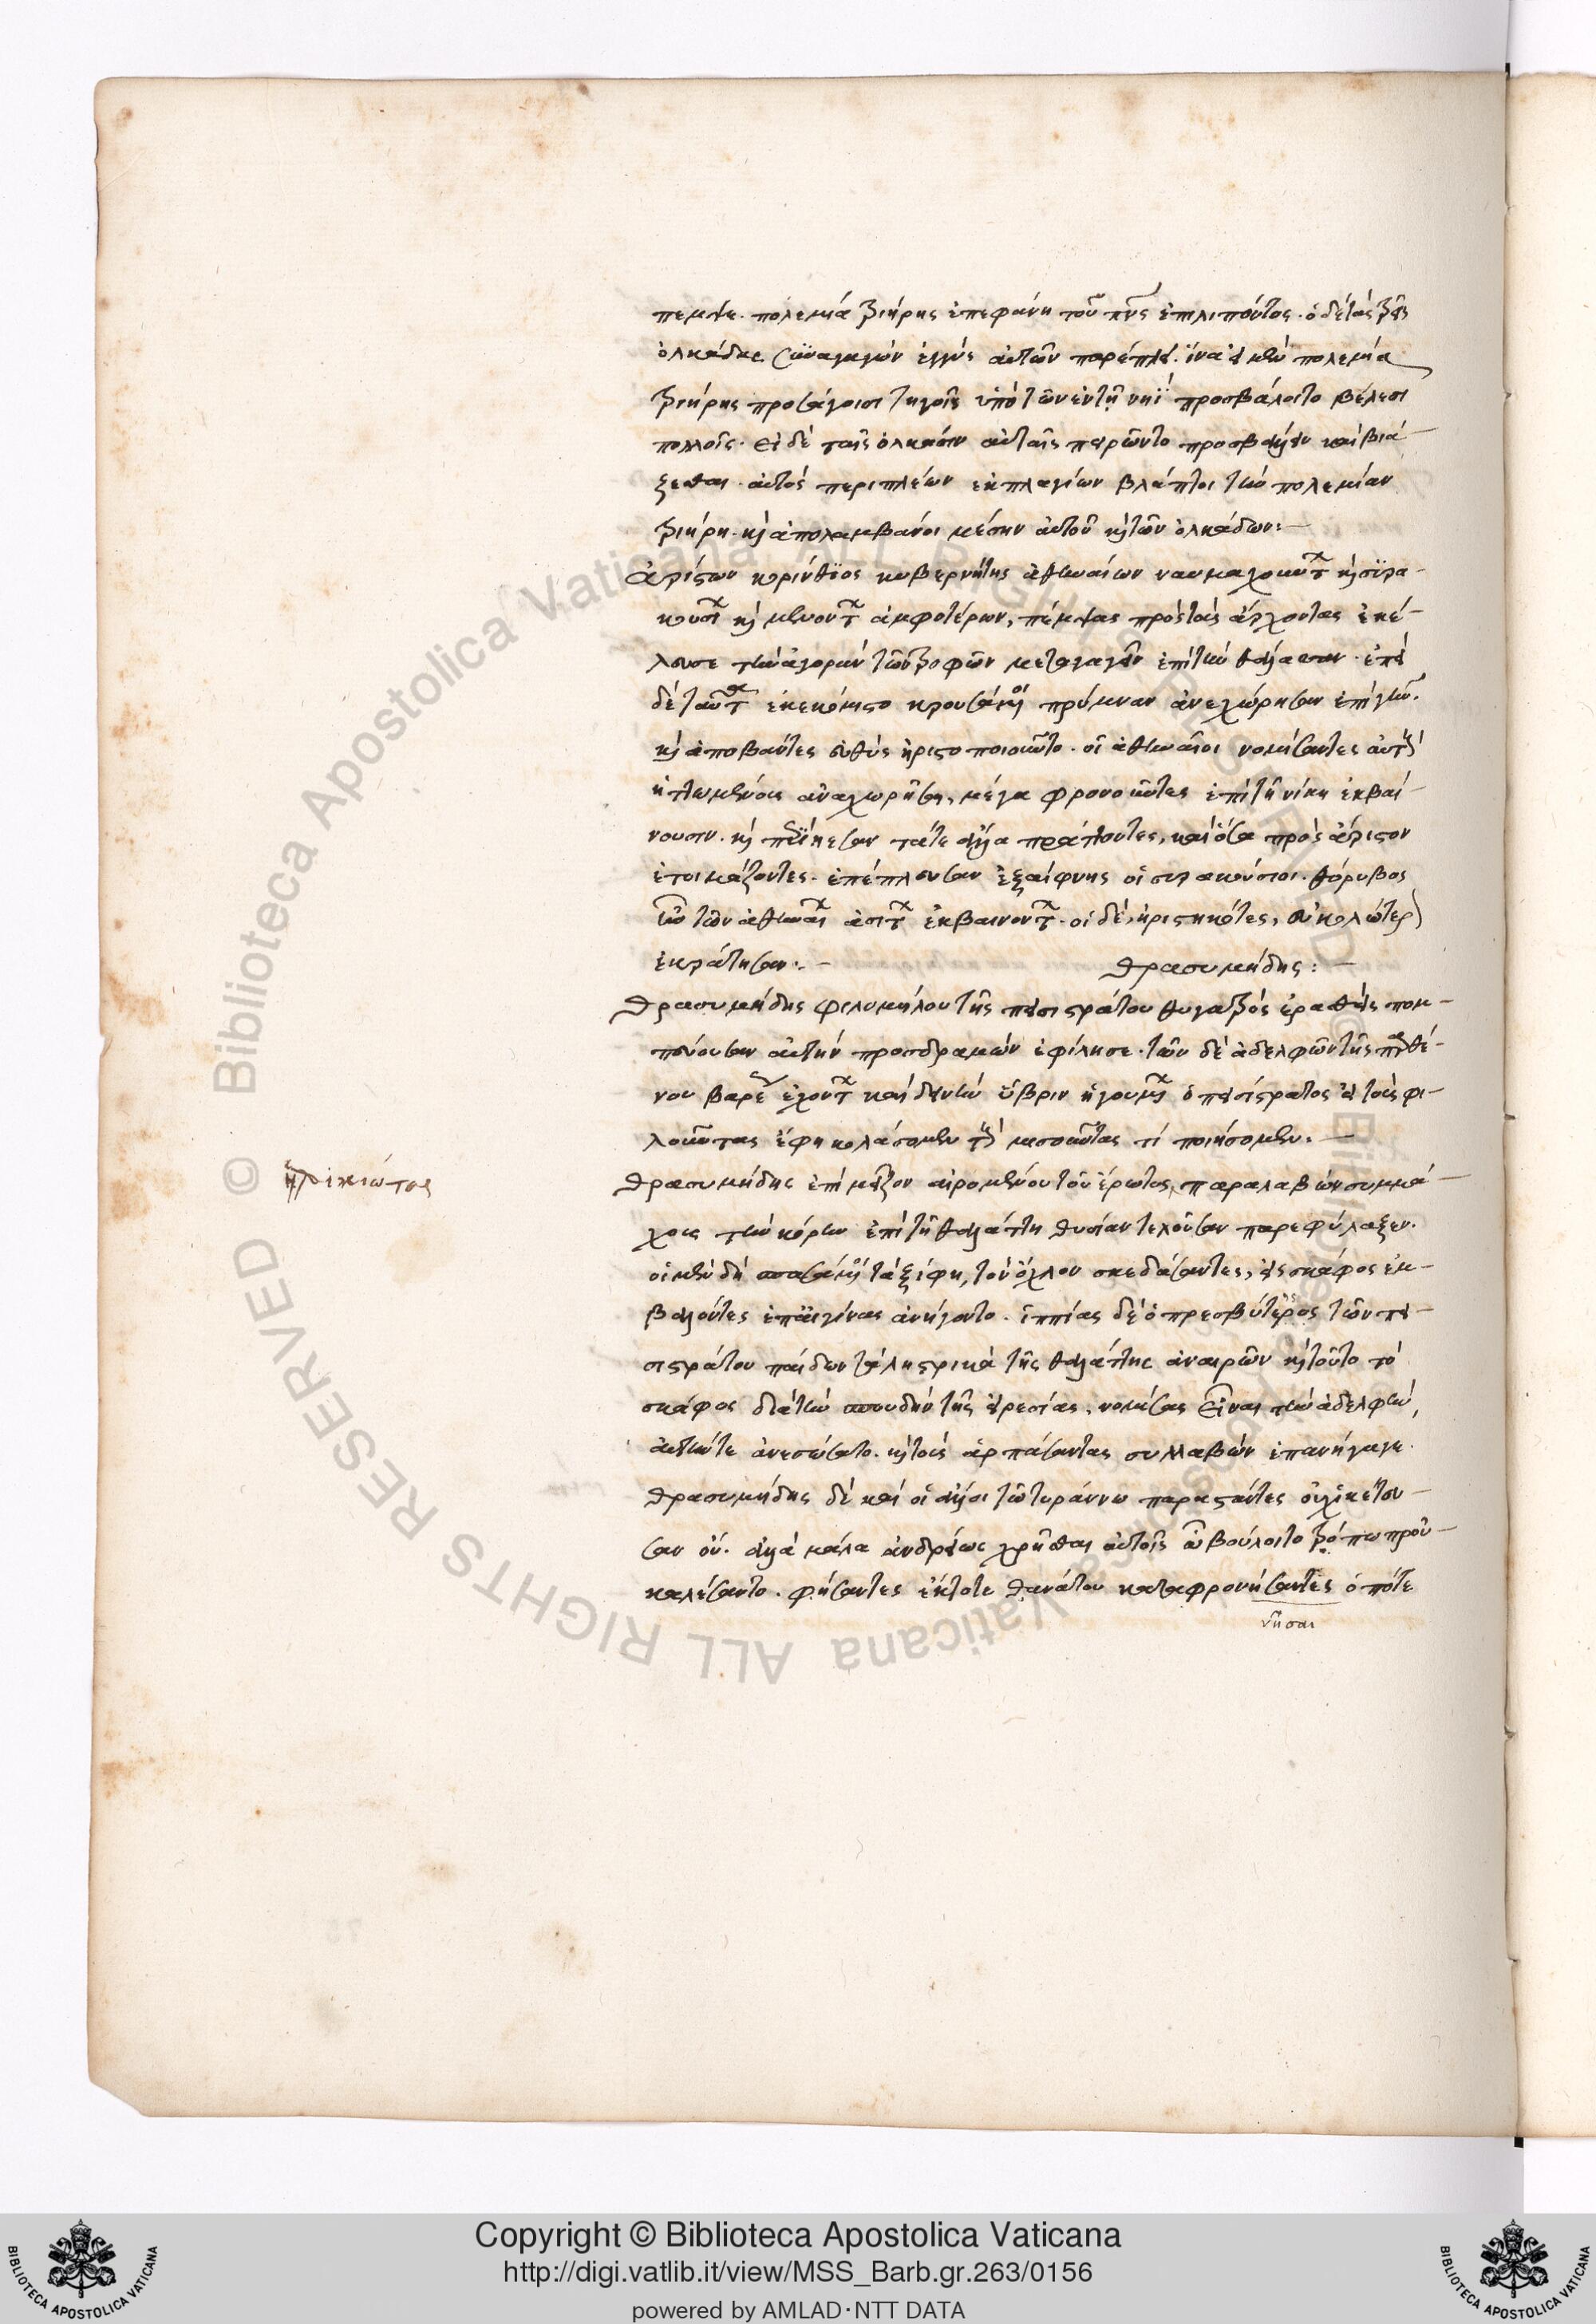 πεμψε. πολεμία τριήρης ἐπεφάνη τοῦ πνς ἐπιλιπόντος. ὁ δὲ τὰς τρεῖς
ὁλκάδας συναγαγὼν ἐγγὺς αὐτῶν παρέπλει. ἵνα εἰ μὲν πολεμία
τριήρης προσάγοι στηγοῖς ὑπὸ τῶν ἐν τῇ νηῒ προσβάλοιτο βέλεσι
πολλοῖς. εἰ δὲ ταῖς ὁλκάσιν αὐταῖς πειρῶντο προσβαλεῖν καὶ βιά-
ζεσθαι. αὐτὸς περιπλέων ἐκ πλαγίων βλάπτοι τὴν πολεμίαν
τριήρη. καὶ ἀπολαμβάνοι μέσην αὐτοῦ καὶ τῶν ὁλκάδων:-
Ἀρίστων κορίνθϊος κυβερνήτης ἀθηναίων ναυμαχούντων καὶ συρα-
κουσίων καὶ μενόντων ἀμφοτέρων, πέμψας πρὸς τοὺς ἄρχοντας ἐκέ-
λευσε τὴν ἀγορὰν τῶν τροφῶν μεταγαγεῖν ἐπὶ τὴν θάλασσαν. ἐπεὶ
δὲ ταῦτα ἐκεκόμιστο κρουσάμενοι πρύμναν ἀνεχώρησαν ἐπὶ γῆν.
καὶ ἀποβάντες εὐθὺς ἠριστοποιοῦντο. οἱ ἀθηναῖοι νομίσαντες αὐτοὺς
ἡττωμένους ἀναχωρῆσαι, μέγα φρονοῦντες ἐπὶ τῇ νίκῃ ἐκβαί-
νουσιν. καὶ τά τε ἄλλα πράττοντες, καὶ ὅσα πρὸς ἄριστον
ἑτοιμάζοντες. ἐπέπλευσαν ἐξαίφνης οἱ συρακούσιοι. θόρυβος
ἦν τῶν ἀθηναίων ἀσίτων ἐκβαινόντων. οἱ δὲ, ἠριστηκότες, εὐκολώτερον
ἐκράτησαν:-
θρασυμήδης:-
Θρασυμήδης φιλομήλου τῆς πεισιστράτου θυγατρὸς ἐρασθεὶς πομ-
πεύουσαν αὐτὴν προσδραμὼν ἐφίλησε. τῶν δὲ ἀδελφῶν τῆς παρθέ-
νου βαρέως ἐχόντων καὶ δεινὴν ὕβριν ἡγουμένων ὁ πεισίστρατος εἰ τοὺς φι-
λοῦντας ἔφη κολάσομεν τοὺς μισοῦντας τί ποιήσομεν.-
Θρασυμήδης ἐπὶ μεῖζον αἰρομένου τοῦ ἔρωτος, παραλαβὼν συμμά-
χους τὴν κόρην ἐπὶ τῇ θαλάττῃ θυσίαν τελοῦσαν παρεφύλαξεν.
οἱ μὲν δὴ σπασάμενοι τὰ ξίφη, τὸν ὄχλον σκεδάσαντες, εἰς σκάφος ἐμ-
βαλόντες ἐπ' αἰγίνας ἀνήγοντο. ἱππίας δὲ ὁ πρεσβύτερος τῶν πει-
σιστράτου παίδων τὰ ληστρικὰ τῆς θαλάττης ἀναιρῶν καὶ τοῦτο τὸ
σκάφος διὰ τὴν σπουδὴν τῆς εἰρεσίας, νομίσας εἶναι τὴν ἀδελφὴν,
αὐτήν τε ἀνεσώσατο. καὶ τοὺς ἁρπάσαντας συλλαβὼν ἐπανήγαγε.
Θρασυμήδης δὲ καὶ οἱ ἄλλοι τῷ τυράννῳ παραστάντες οὐχ ἱκέτευ-
σαν οὐ. ἀλλὰ μάλα ἀνδρείως χρῆσθαι αὐτοῖς ᾧ βούλοιτο τρόπῳ προὐ-
καλέσαντο. φήσαντες ἔκτοτε θανάτου καταφρονήσαντες ὁπότε
νῆσαι